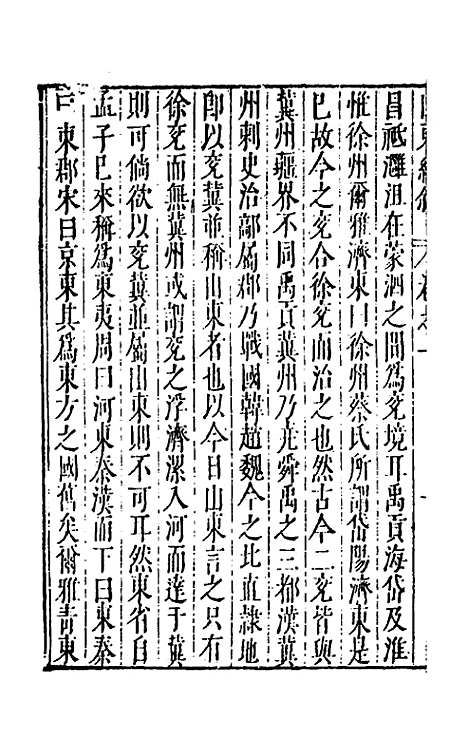 昌祗灉沮在蒙泗之間爲兖境耳禹貢海岱及淮
惟徐州爾雅濟東曰徐州蔡氏所謂岱陽濟東是
已故今之兖合徐兖而治之也然古今二兖皆與
冀州疆界不同禹貢冀州乃堯舜禹之三都漢冀
州刺史治部屬郡乃戰國韓趙魏今之北直隸地
即以兖冀並稱山東者也以今日山東言之只有
徐兖而無冀州或謂兖之浮濟漯入河而達于冀
則可倘欲以兖冀並屬山東則不可耳然東省自
孟子已來稱爲東夷周曰河東秦漢而下曰東秦
曰東郡宋曰京東其爲東方之國舊矣爾雅青東